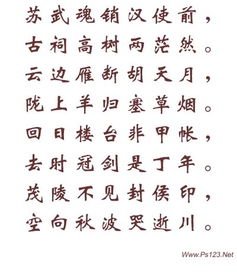 苏武魂销汉使前，
古祠高树两茫然。
云边雁断胡天月，
陇上羊归塞草烟。
回日楼台非甲帐，
去时冠剑是丁年。
茂陵不见封侯印，
空向秋波哭逝川。
www.Ps123.Net